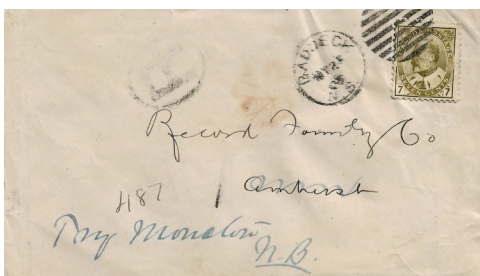 R
BADDECK
7 7
Record Foundry Co
Amherst
487
Try Moncton
N.B.